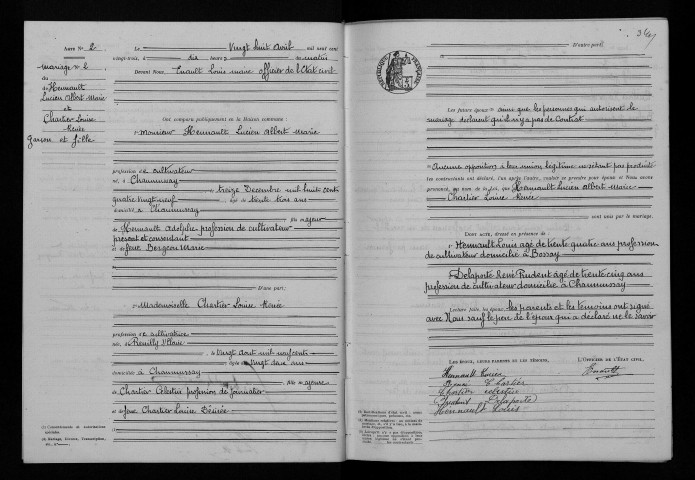 Acte No 2
mariage No 2
du
de Hennault
Lucien Albert Marie
et
Chartier Louise
Renée
garçon et fille
Le Vingt huit avril mil neuf cent
vingt-trois, à dix heures du matin
Devant Nous, Louis marie officier de l'Etat civil
Ont comparu publiquement en la Maison commune :
Monsieur Hennault Lucien Albert Marie
profession de cultivateur
né, à Chaumussay
le treize Décembre mil huit cent
quatre vingt neuf âgé de trente trois ans
domicilié à Chaumussay
fils majeur
de Hennault Adolphe profession de cultivateur
présent et consentant
et de feue Bergeon Marie
D'une part :
Mademoiselle Chartier Louise Renée
profession de cultivatrice
née à Preuilly s/Claise
le vingt août mil neuf cent
âgée de vingt deux ans
domiciliée à Chaumussay
fille majeure
de Chartier Célestin profession de journalier
et de feue Chartier Louise Désirée
D'autre part
Les futurs époux ainsi que les personnes qui autorisent le
mariage déclarent qu'il n'y a pas de contrat
Aucune opposition à leur union légitime ne s'étant pas produite
les contractants ont déclaré, l'un après l'autre, vouloir se prendre pour époux et Nous avons
prononcé, au nom de la loi, que Hennault Lucien Albert Marie
Chartier Louise Renée
sont unis par le mariage.
Dont acte, dressé en présence de :
Hennault Louis âgé de trente quatre ans profession
de cultivateur domicilié à Bossay
Delaporte René Prudent âgé de trente cinq ans
profession de cultivateur domicilié à Chaumussay
Lecture faite, les époux, les parents et les témoins ont signé
avec Nous sauf le père de l'époux qui a déclaré ne le savoir
Les époux, leurs parents et les témoins,
L'Officier de l'État civil,
Hennault Lucien
Renée Chartier
Chartier célestin
Delaporte
Hennault Louis